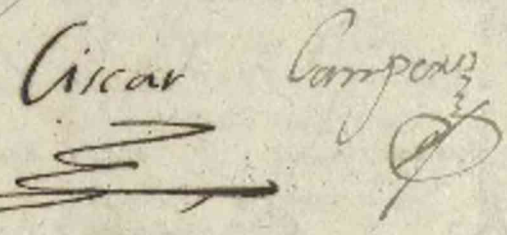 Ciscar Campany